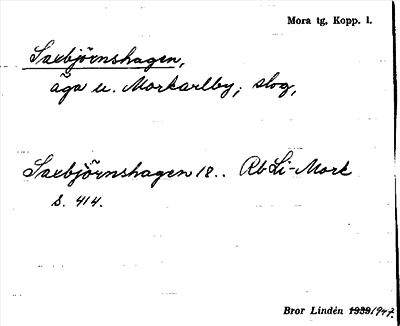 Mora tg, Kopp. l.
Saxbjörnshagen,
äga u. Morkarlby; slog,
Saxbjörnshagen 18.. Rb Li-Mork
s. 414.
Bror Lindén 1939 1947.